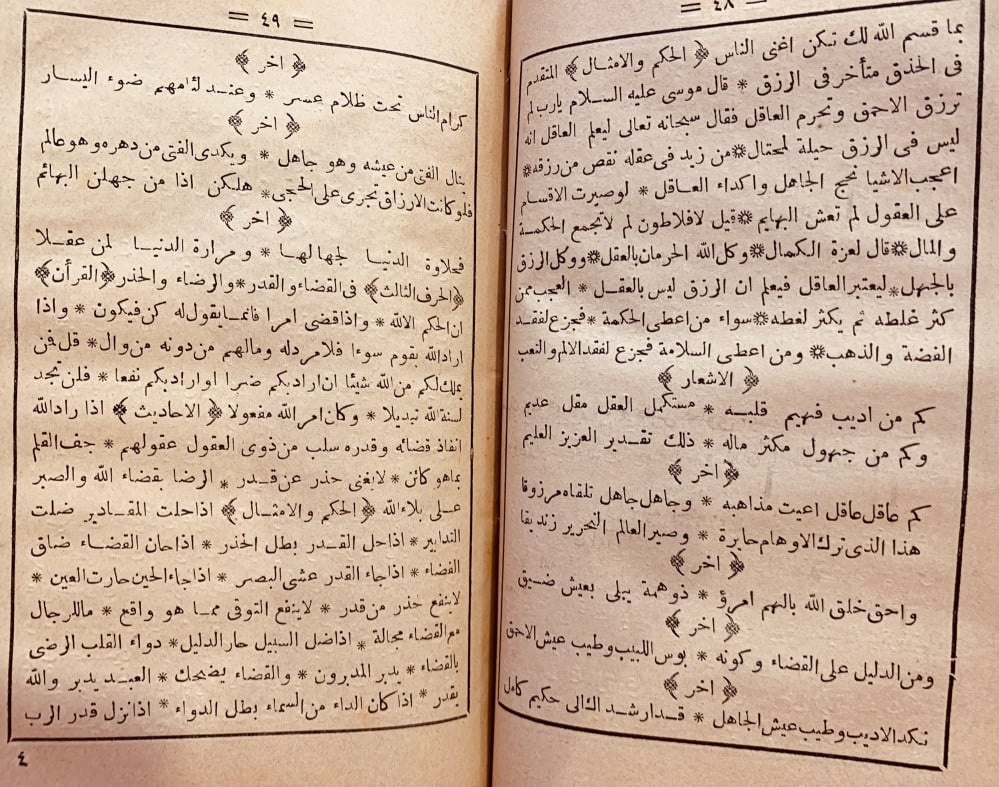 = ٤٨ =
بما قسم الله لك تكن اغنى الناس ﴿ الحكم والامثال ﴾ المتقدم
فى الحذق متأخر فى الرزق * قال موسى عليه السلام يارب لم
ترزق الاحمق وتحرم العاقل فقال سبحانه تعالى ليعلم العاقل انه
ليس فى الرزق حيلة لمحتال * من زيد فى عقله نقص من رزقه *
اعجب الاشيا نجح الجاهل واكداء العاقل * لو صيرت الاقسام
على العقول لم تعش البهايم * قيل لافلاطون لم لا تجمع الحكمة
والمال * قال لعزة الكمال * وكل الله الحرمان بالعقل * ووكل الرزق
بالجهل * ليعتبر العاقل فيعلم ان الرزق ليس بالعقل * العجب ممن
كثر غلطه ثم يكثر لغطه * سواء من اعطى الحكمة * فجزع لفقد
الفضة والذهب * ومن اعطى السلامة فجزع لفقد الالم والتعب
﴿ الاشعار ﴾
كم من اديب فهيم قلبه * مستكمل العقل مقل عديم
وكم من جهول مكثر ماله * ذلك تقدير العزيز العليم
﴿ اخر ﴾
كم عاقل عاقل اعيت مذاهبه * وجاهل جاهل تلقاه مرزوقا
هذا الذى ترك الاوهام حايرة * وصير العالم النحرير زنديقا
﴿ اخر ﴾
واحق خلق الله بالهم امرؤ * ذو همة يبلى بعيش ضيق
﴿ اخر ﴾
ومن الدليل على القضاء وكونه * بوس اللبيب وطيب عيش الاحمق
﴿ اخر ﴾
نكد الاديب وطيب عيش الجاهل * قد ارشداك الى حكيم كامل
= ٤٩ =
﴿ اخر ﴾
كرام الناس تحت ظلام عسر * وعند لئامهم ضوء اليسار
﴿ اخر ﴾
ينال الفتى من عيشه وهو جاهل * ويكدى الفتى من دهره وهو عالم
فلو كانت الارزاق تجرى على الحجى * هلكن اذا من جهلن البهائم
﴿ اخر ﴾
فحلاوة الدنيا لجهالها * ومرارة الدنيا لمن عقلا
﴿ الحرف الثالث ﴾ فى القضاء والقدر * والرضاء والحذر ﴿ القرأن ﴾
ان الحكم الا لله * واذا قضى امرا فانما يقول له كن فيكون * واذا
اراد الله بقوم سوءا فلا مرد له ومالهم من دونه من وال * قل فمن
يملك لكم من الله شيئا ان اراد بكم ضرا او اراد بكم نفعا * فلن تجد
لسنة الله تبديلا * وكان امر الله مفعولا ﴿ الاحاديث ﴾ اذا راد الله
انفاذ قضائه وقدره سلب من ذوى العقول عقولهم * جف القلم
بما هو كائن * لا يغنى حذر عن قدر * الرضا بقضاء الله والصبر
على بلاء الله ﴿ الحكم والامثال ﴾ اذا حلت المقادير ضلت
التدابير * اذا حل القدر بطل الحذر * اذا حان القضاء ضاق
الفضاء * اذا جاء القدر عشى البصر * اذا جاء الحين حارت العين *
لا ينفع حذر من قدر * لا ينفع التوقى مما هو واقع * ما للرجال
مع القضاء محالة * اذا ضل السبيل حار الدليل * دواء القلب الرضى
بالقضاء * يدبر المدبرون * والقضاء يضحك * العبد يدبر والله
يقدر * اذا كان الداء من السماء بطل الدواء * اذا نزل قدر الرب
٤